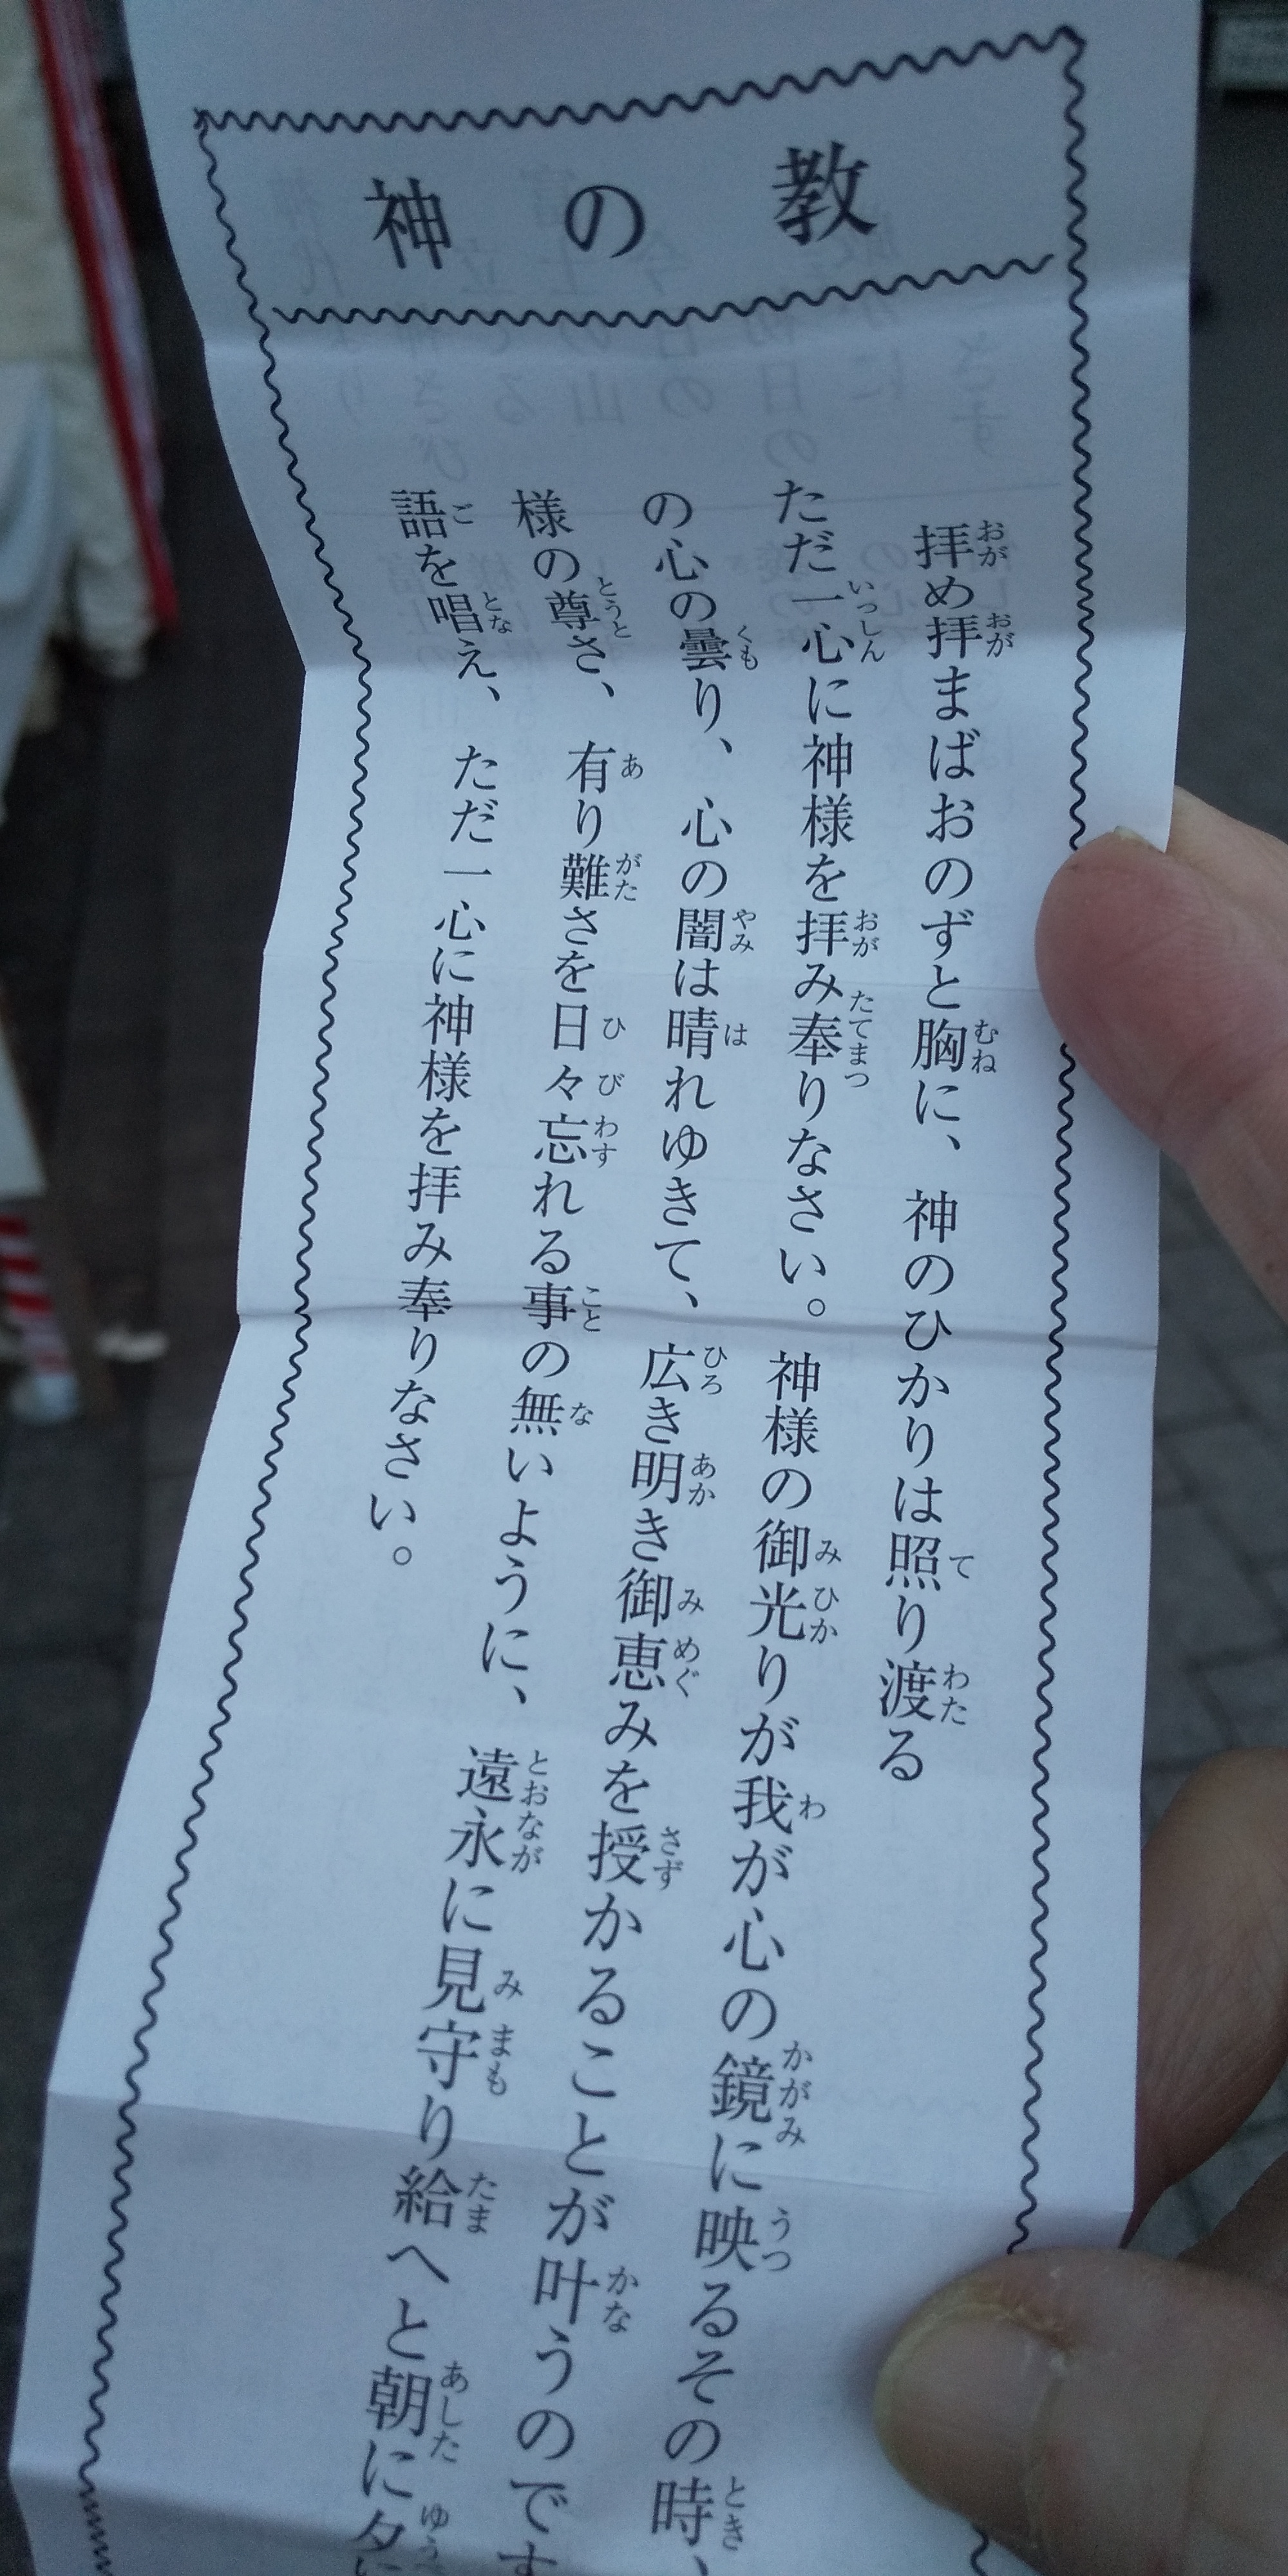 神の教
拝め拝まばおのずと胸に、神のひかりは照り渡る
ただ一心に神様を拝み奉りなさい。神様の御光りが我が心の鏡に映るその時、
の心の曇り、心の闇は晴れゆきて、広き明き御恵みを授かることが叶うのです
様の尊さ、有り難さを日々忘れる事の無いように、遠永に見守り給へと朝に夕
語を唱え、ただ一心に神様を拝み奉りなさい。